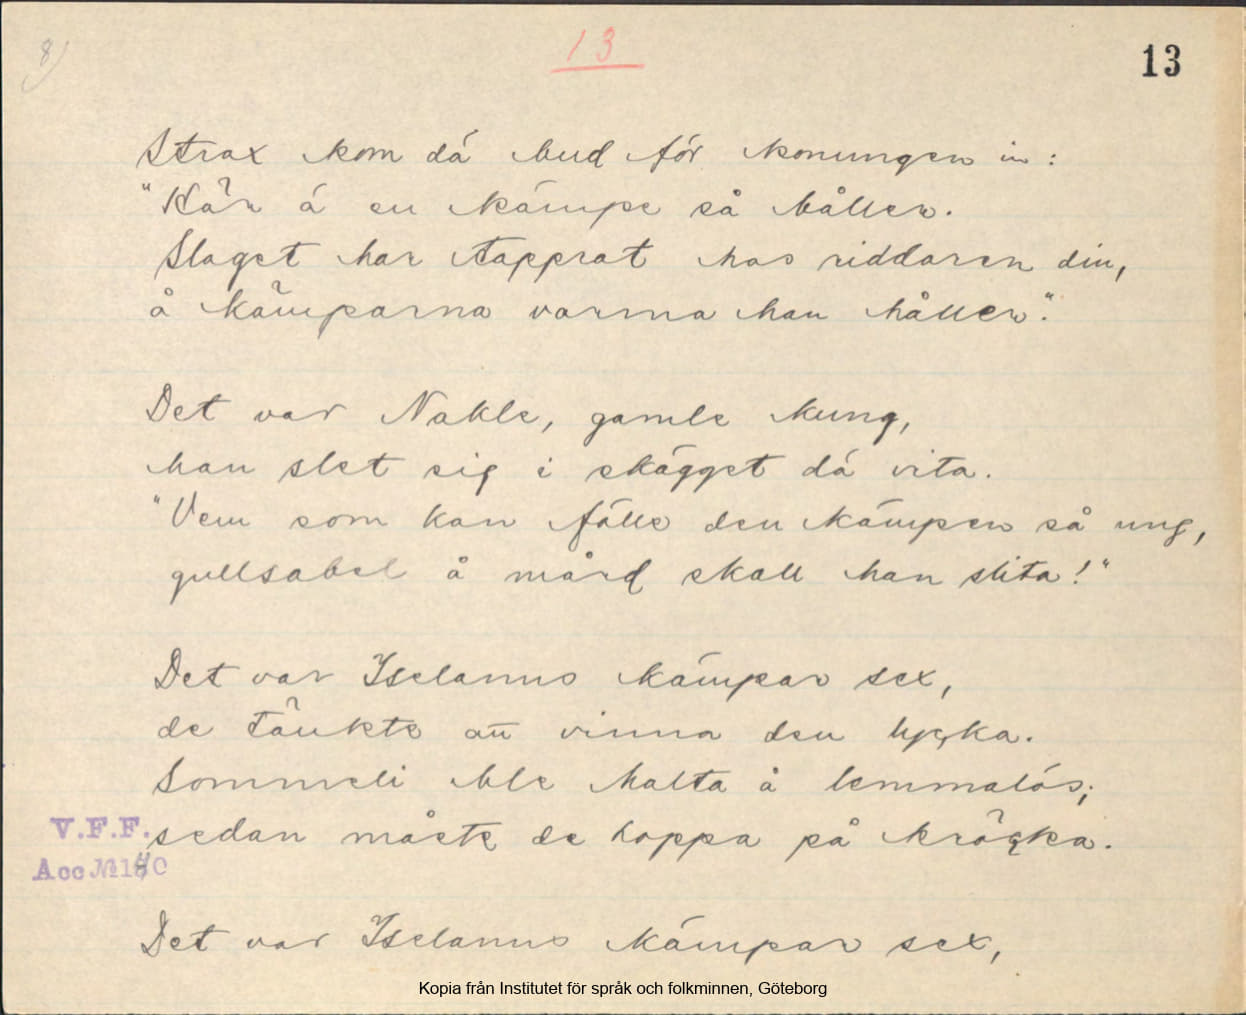 8)
13
13
Strax kom då bud för konungen in:
"Här ä en kämpe så båller.
Slaget har tapprat has riddaren din,
å kämparna varma han håller."
Det var Nakle, gamle kung,
han slet sig i skägget dä vita.
"Vem som kan fälle den kämpen så ung,
gullsabel å mård skall han slita!"
Det var Iselanns kämpar sex,
de tänkte att vinna den lycka.
Sommeli ble halta å lemmalös;
sedan måste de hoppa på kröcka.
V.F.F.
Acc №
Det var Iselanns kämpar sex,
Kopia från Institutet för språk och folkminnen, Göteborg